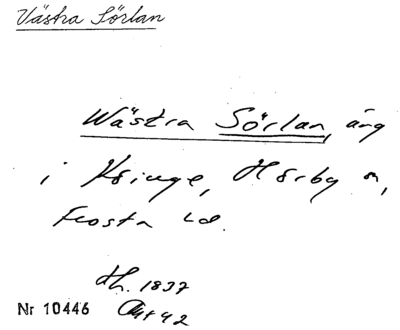 Västra Sörlan
Wästra Sörlan, äng
i Kringe, Hörby sn,
Frosta hd.
1837
Nr 10446